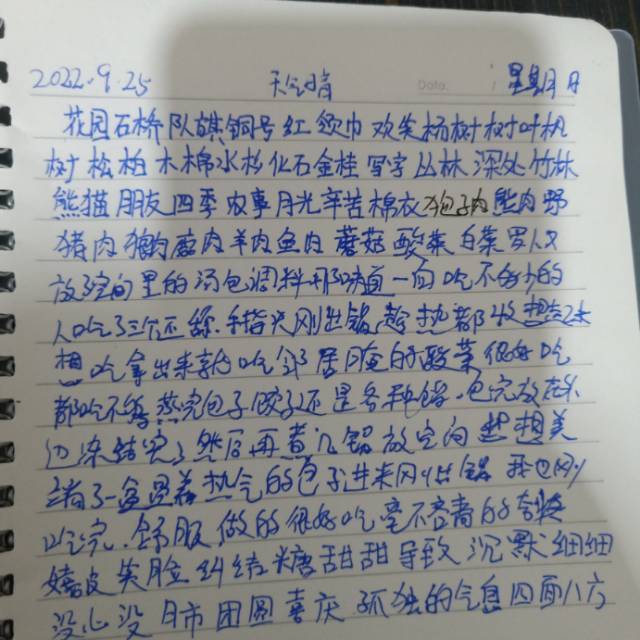 2022.9.25 天气晴 Data. 星期日
花园石桥队旗铜号红领巾欢笑杨树树叶枫
树松柏木棉水杉化石金桂写字丛林深处竹林
熊猫朋友四季农事月光辛苦棉衣狍子肉熊肉野
猪肉狍肉鹿肉羊肉鱼肉蘑菇酸菜白菜罗人又
放空间里的汤包调料那味道一向吃不够的
人吃了三个还 手指 刚出锅趁热都
想吃拿出来就吃邻居腌的酸菜很好吃
都吃不够蒸完包子饺子还是各种馅.包完放在外
边冻结完了然后再煮几锅放空间 想美
端了一盒冒着热气的包子进来刚出锅我也刚
吃完.舒服做的很好吃毫不吝啬的夸奖
嬉皮笑脸纠结糖甜甜导致沉默细细
没心没肺团圆喜庆孤独的气息四面八方